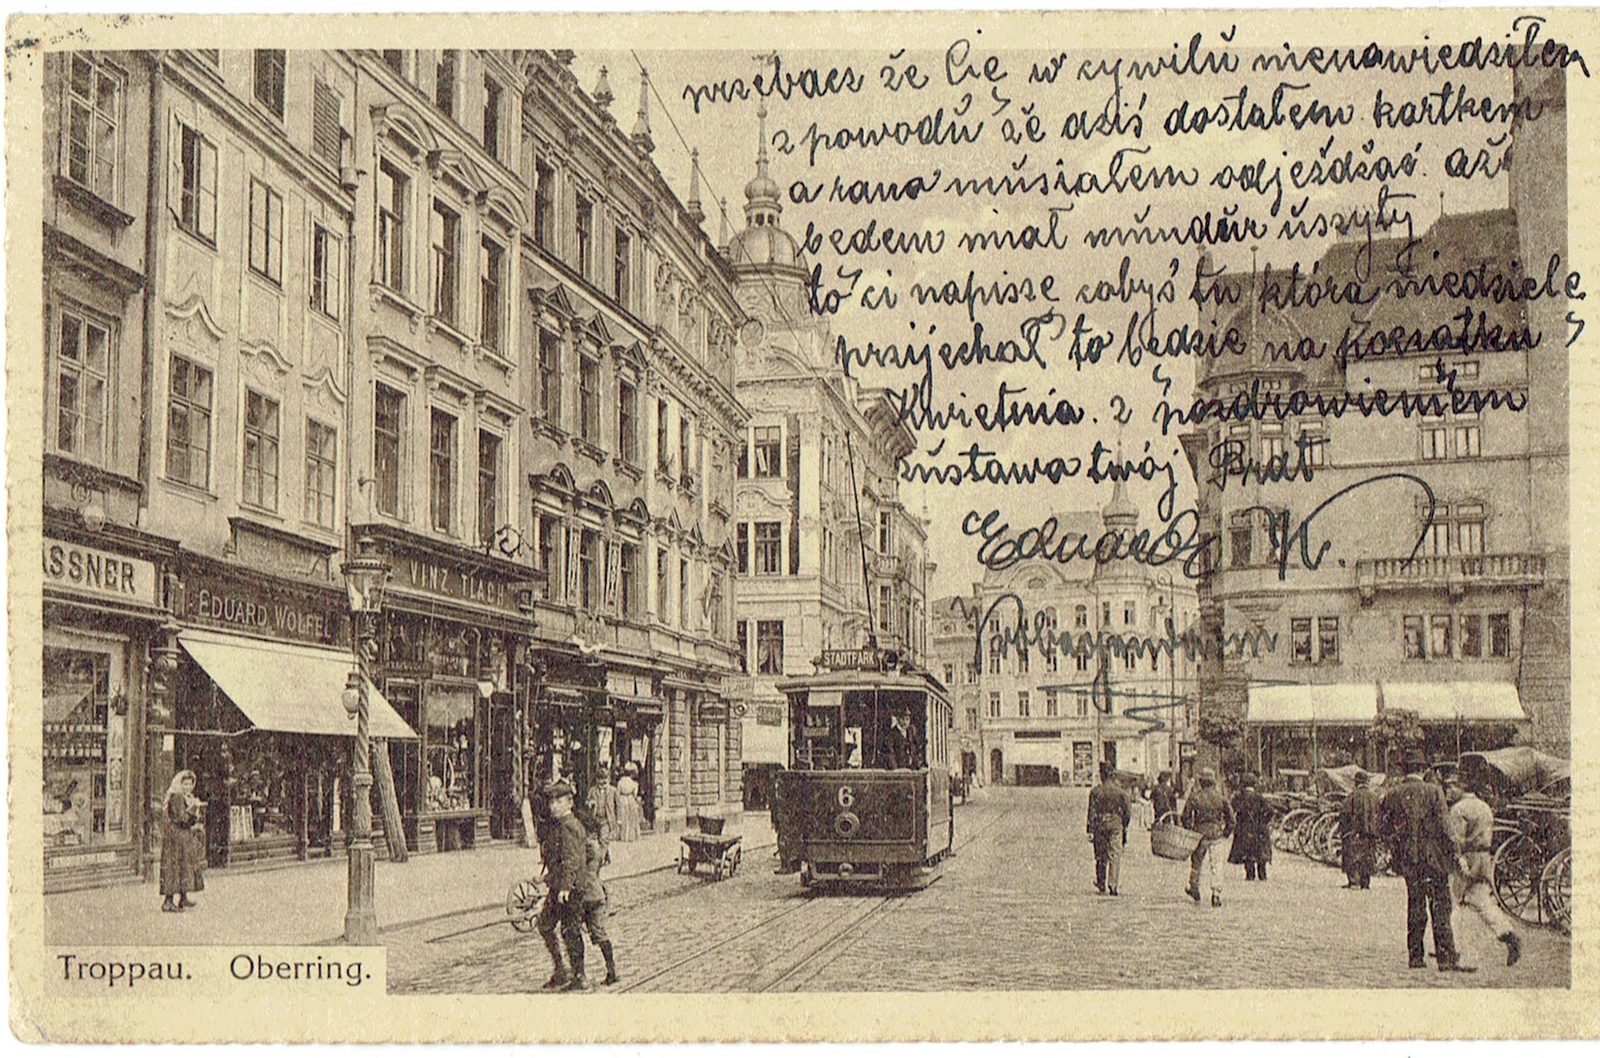 przebacz že Cię w cywilů nienawiedziłem
z powodů že dziś dostałem kartkem
a rana můsiałem odježdżać. aż
bedem miał můndůr ůszyty
to ci napisze cobyś tu która niedziele
przijechał to będzie na początku
Kwietnia. z pozdrowieniem
zůstawa twój Brat
Eduard K.
ASSNER
EDUARD WOLFF
VINZ. TLACH
STADTPARK
6
Troppau. Oberring.